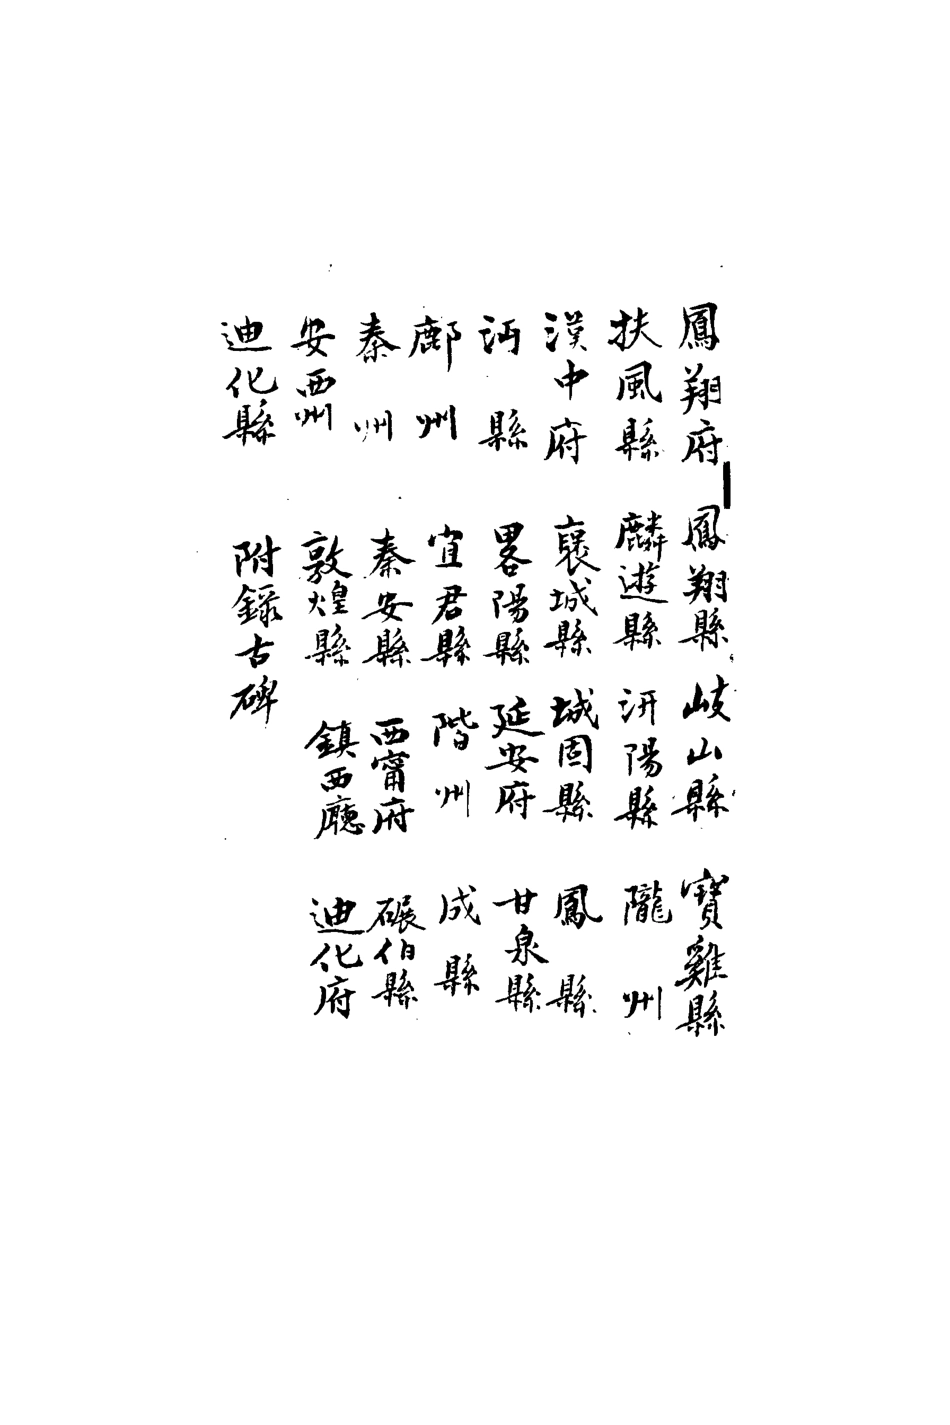 鳳翔府 鳳翔縣 岐山縣 寶雞縣
扶風縣 麟遊縣 汧陽縣 隴州
漢中府 襃城縣 城固縣 鳳縣
沔縣 畧陽縣 延安府 甘泉縣
鄜州 宜君縣 階州 成縣
秦州 秦安縣 西甯府 碾伯縣
安西州 敦煌縣 鎮西廳 迪化府
迪化縣 附錄古碑